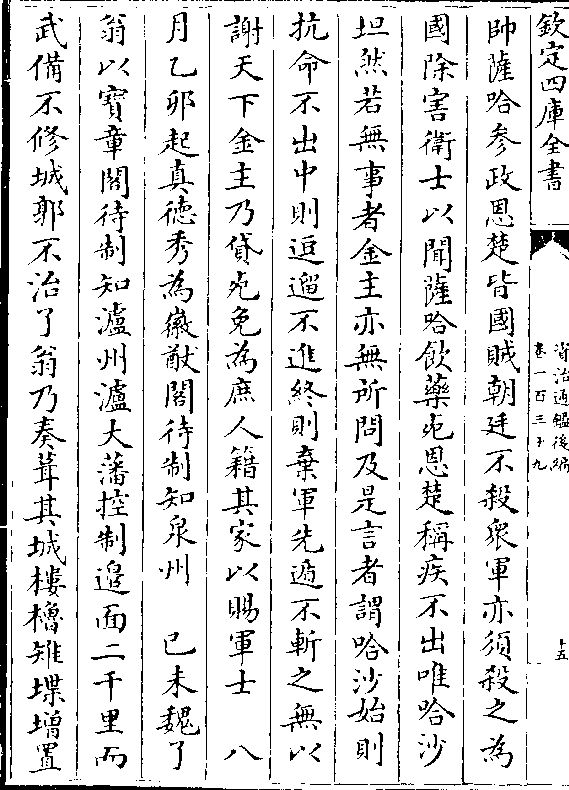 欽定四庫全書
資治通鑑後編
卷一百三十九
十五
帥薩哈參政思楚皆國賊朝廷不殺衆軍亦須殺之為
國除害衛士以聞薩哈飲藥死思楚稱疾不出唯哈沙
坦然若無事者金主亦無所問及是言者謂哈沙始則
抗命不出中則逗遛不進終則棄軍先遁不斬之無以
謝天下金主乃貸死免為庶人籍其家以賜軍士　八
月乙卯起真德秀為徽猷閣待制知泉州　己未魏了
翁以寶章閣待制知瀘州瀘大藩控制邊面二千里而
武備不修城郭不治了翁乃奏葺其城樓櫓雉堞增置